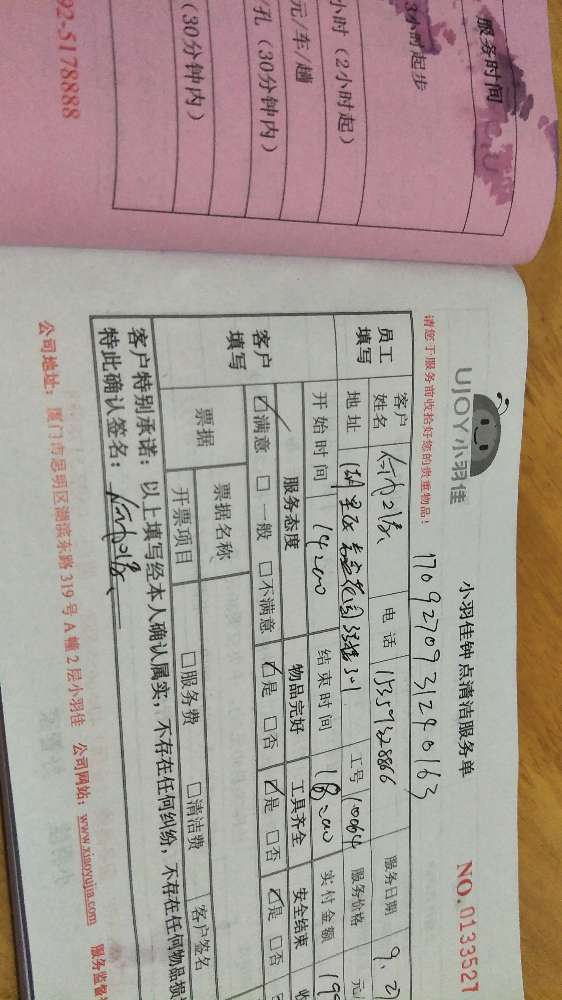 服务时间
3小时起步
小时（2小时起）
元/车/趟
孔（30分钟内）
（30分钟内）
92-5178888
UJOY小羽佳
小羽佳钟点清洁服务单
NO.0133527
1709270931240163
请您于服务前收拾好您的贵重物品！
员工填写
客户姓名
电话 15359328866
服务日期 9.2
地址
工号 10064
服务价格 元/
开始时间 14:00
结束时间 18:00
实付金额 19
客户填写
服务态度 物品完好 工具齐全 安全结束
☑满意 □一般 □不满意 ☑是 □否 ☑是 □否 ☑是 □否
票据
票据名称
开票项目 □服务费 □清洁费 客户签名
客户特别承诺：以上填写经本人确认属实，不存在任何纠纷，不存在任何物品损
特此确认签名：
公司地址：厦门市思明区湖滨东路319号A幢2层小羽佳 公司网站：www.xiaoyujia.com 服务监督